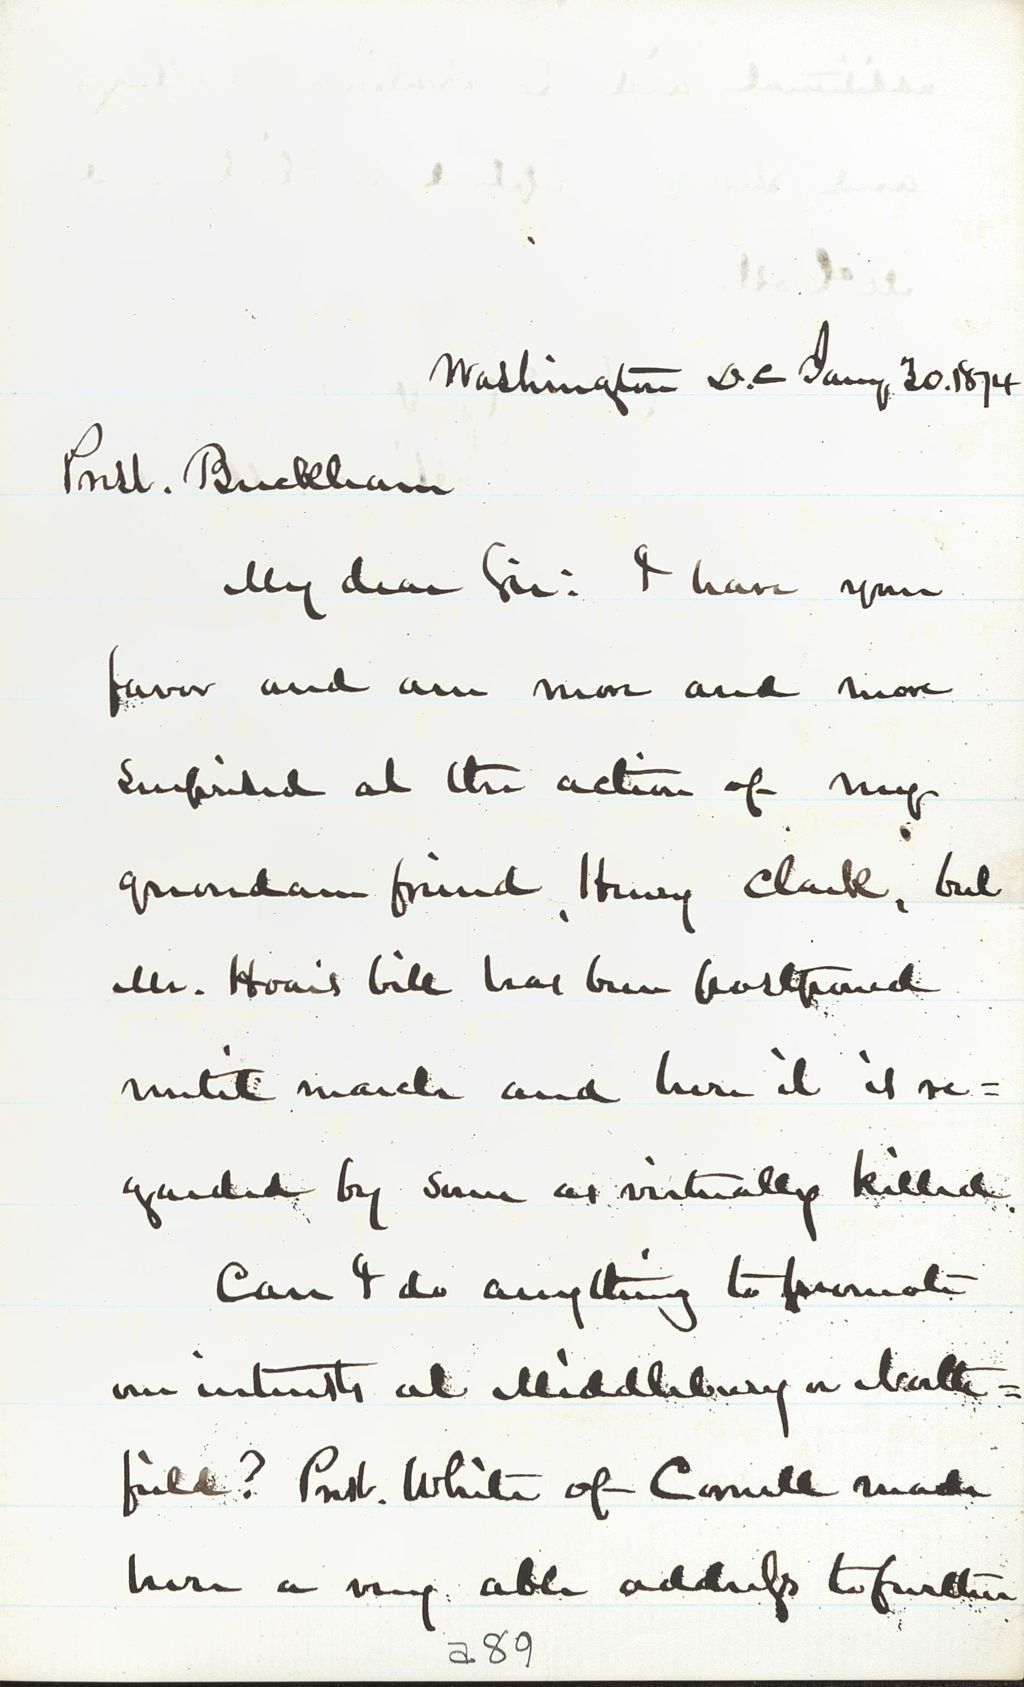 Washington D.C Jany 30. 1874
Prest. Buckham
My dear Sir: I have your
favor and am more and more
surprised at the action of my
quondam friend, Henry Clark, but
Mr. Hoar's bill has been postponed
until march and here it is re=
garded by some as virtually killed.
Can I do anything to promote
our interests at Middlebury or North=
field? Prest. White of Cornell made
here a very able address to further
a89